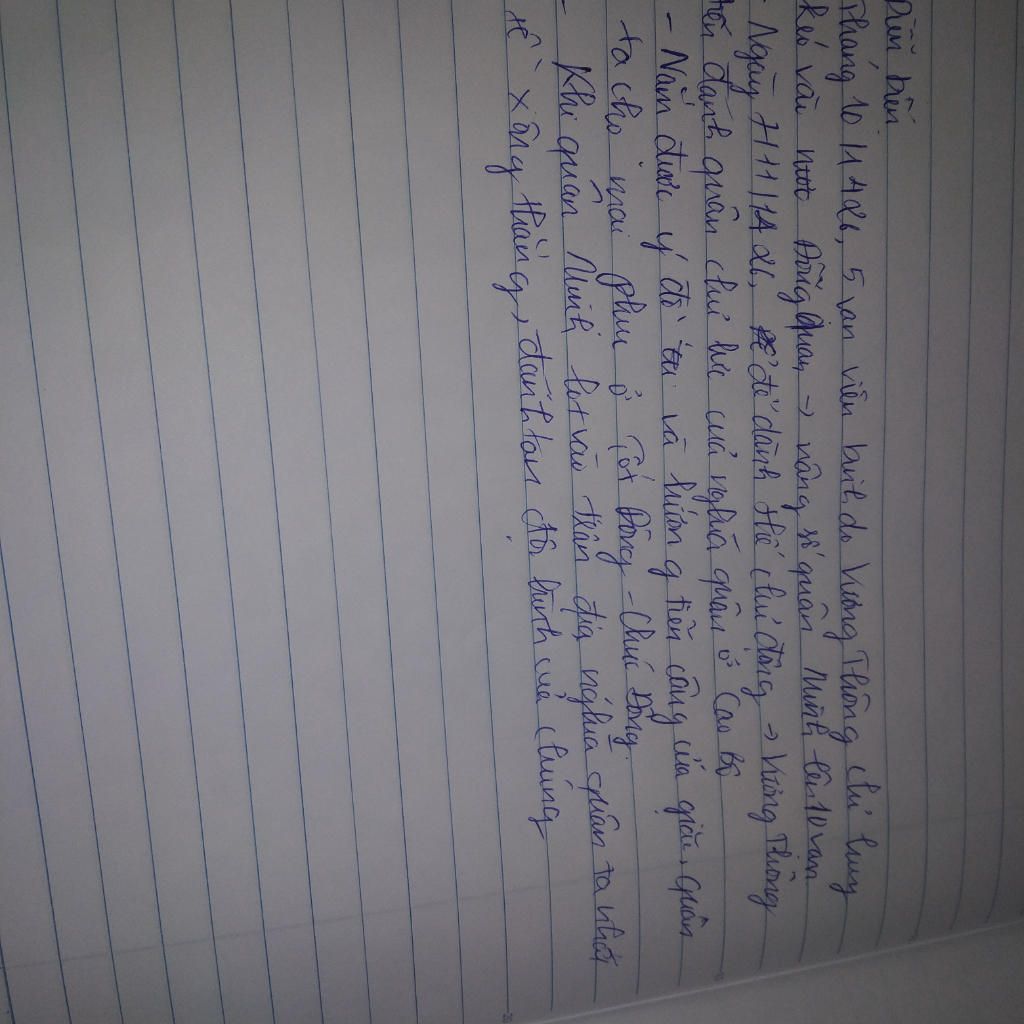 Diễn biến
Tháng 10/1426, 5 vạn viện binh do Vương Thông chỉ huy
kéo vào Đông Quan → nâng số quân Minh lên 10 vạn
- Ngày 7/11/1426, để dành thế chủ động → Vương Thông
tiến đánh quân chủ lực của nghĩa quân ở Cao Bộ
- Nắm được ý đồ và hướng tiến công của giặc, quân
ta cho mai phục ở Tốt Động - Chúc Động.
- Khi quân Minh lọt vào trận địa, nghĩa quân ta nhất
tề xông thẳng, đánh tan đội hình của chúng